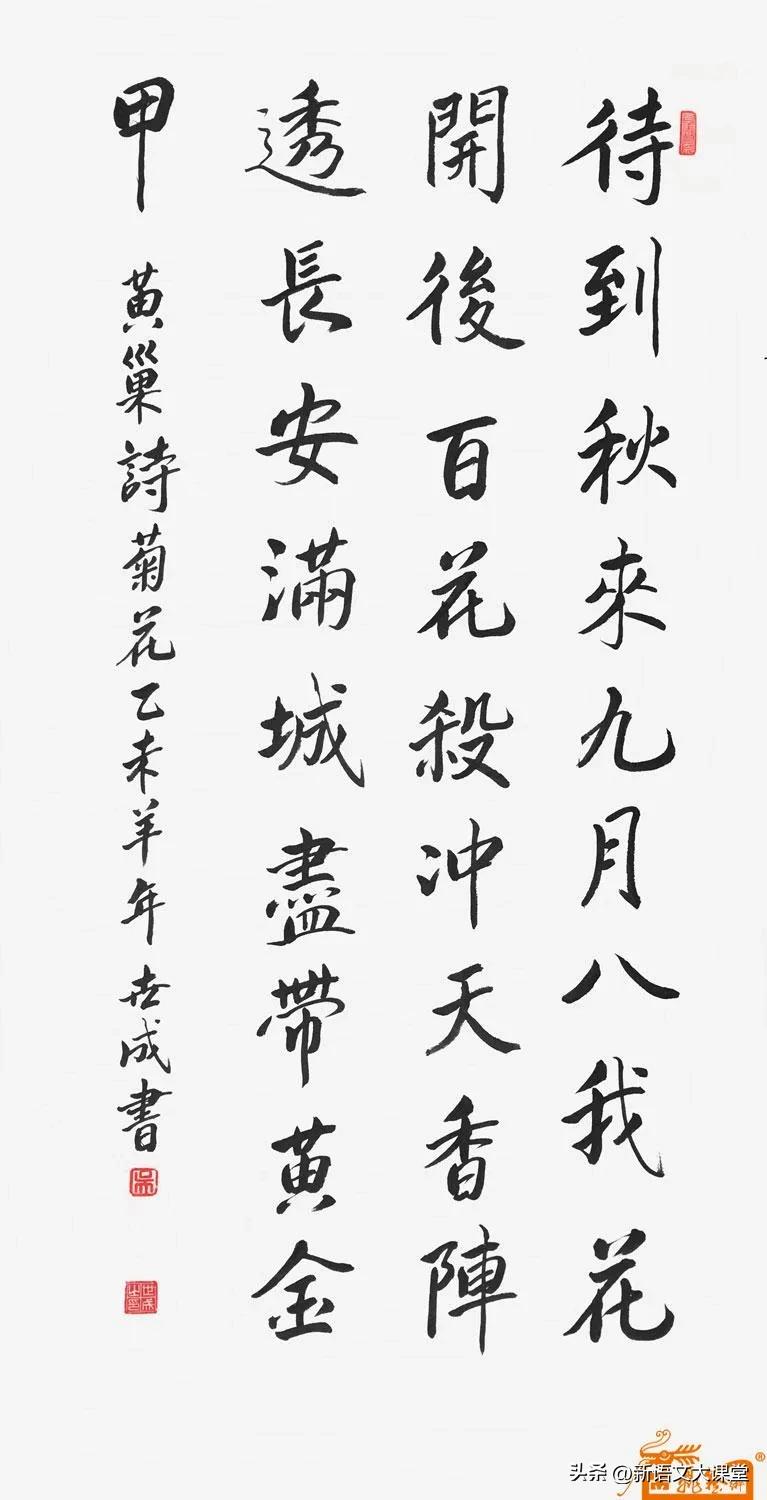 待到秋來九月八我花
開後百花殺冲天香陣
透長安滿城盡帶黄金
甲
黄巢詩菊花乙未羊年 世成書
头条 @新语文大课堂